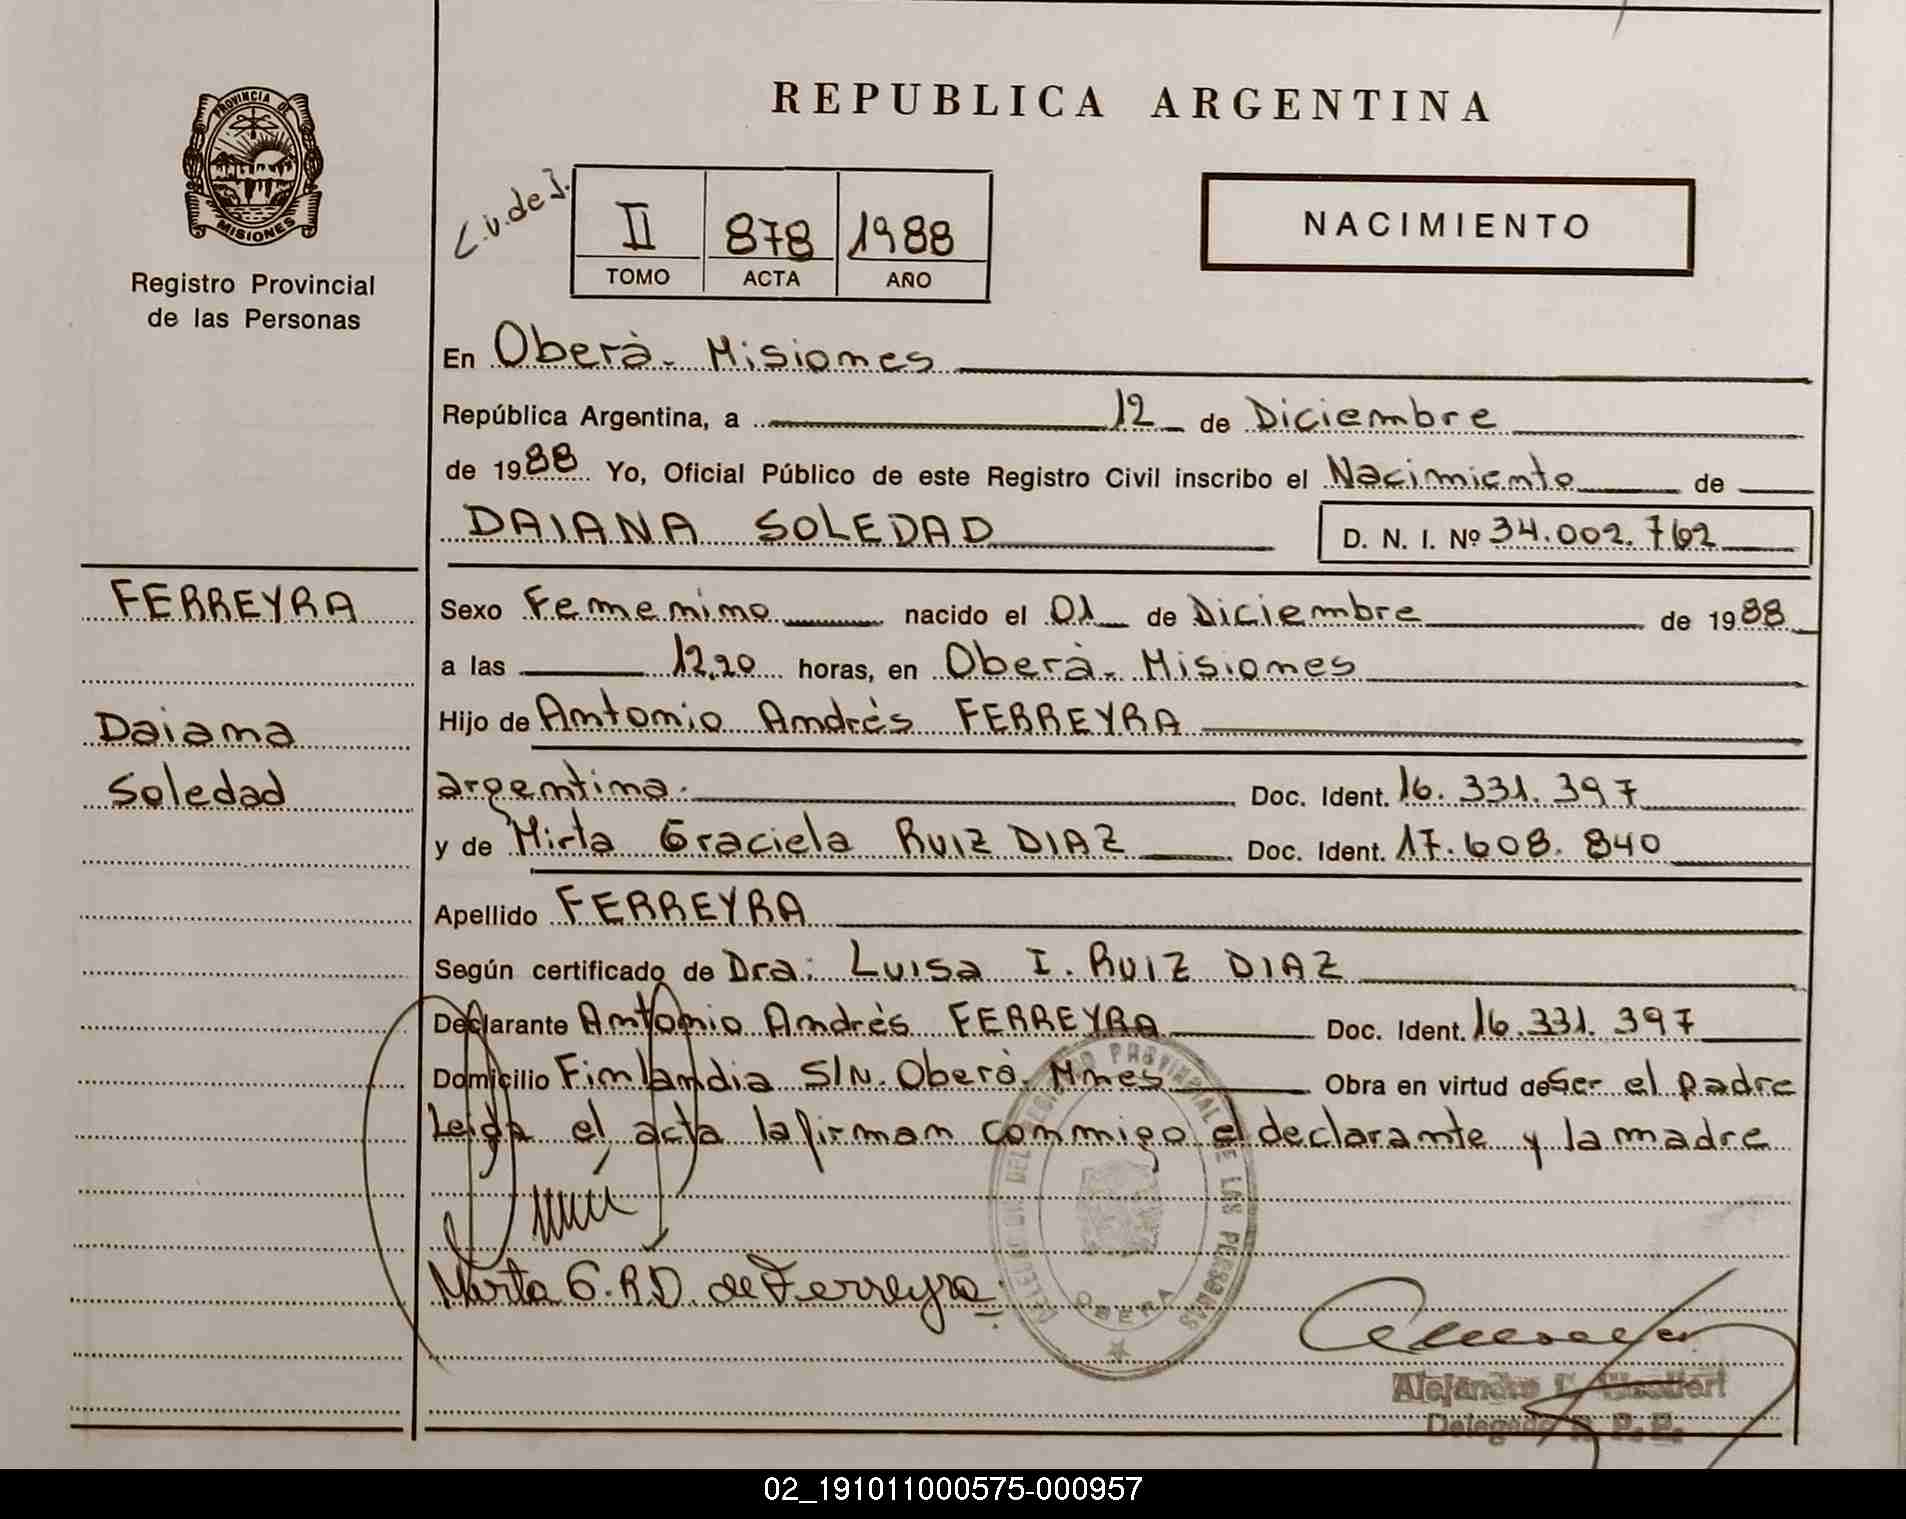 REPUBLICA ARGENTINA
PROVINCIA DE
MISIONES
Registro Provincial
de las Personas
L.v.de J.
II 878 1988
TOMO ACTA AÑO
NACIMIENTO
En Oberà - Misiones
República Argentina, a 12 de Diciembre
de 1988 Yo, Oficial Público de este Registro Civil inscribo el Nacimiento de
DAIANA SOLEDAD D. N. I. Nº 34.002.762
FERREYRA
Daiana
Soledad
Sexo Femenino nacido el 01 de Diciembre de 1988
a las 12,20 horas, en Oberà - Misiones
Hijo de Antonio Andrés FERREYRA
argentina. Doc. Ident. 16.331.397
y de Mirta Graciela RUIZ DIAZ Doc. Ident. 17.608.840
Apellido FERREYRA
Según certificado de Dra: Luisa I. RUIZ DIAZ
Declarante Antonio Andrés FERREYRA Doc. Ident. 16.331.397
Domicilio Finlandia S/N. Oberà. Mnes Obra en virtud de Ser el padre
Leida el acta la firman conmigo el declarante y la madre
Mirta G. R.D. de Ferreyra
DEL REGISTRO PROVINCIAL DE LAS PERSONAS
OBERA
Alejandro
Delegado R. P. P.
02_191011000575-000957